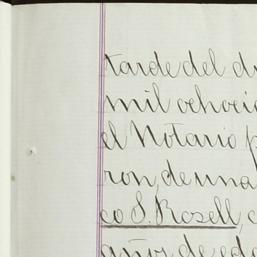 tarde del d
mil ochoci
el Notario p
ron, de una
co S. Rosell, c
años, de eda